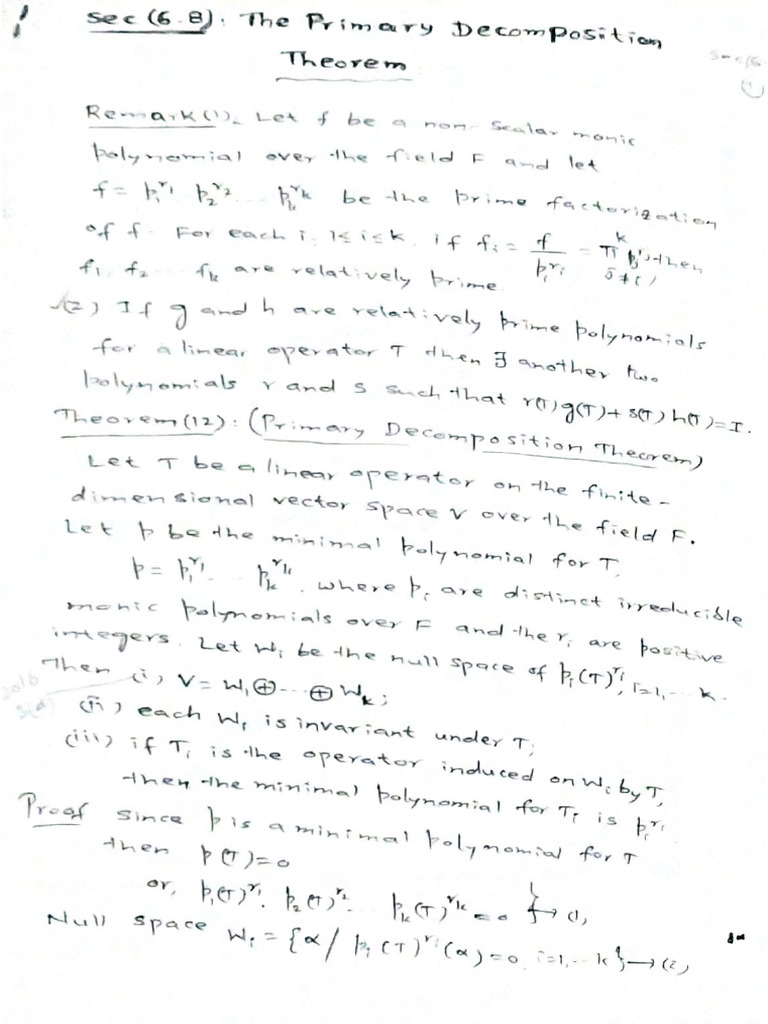 Sec (6.8): The Primary Decomposition
Theorem
Remark (1). Let f be a non-scalar monic
polynomial over the field F and let
f = p₁^r₁ p₂^r₂ ... pₖ^rₖ be the prime factorization
of f. For each i, 1≤i≤k, if fᵢ = f/pᵢ^rᵢ = π^k_{j≠i} pⱼ^rⱼ, then
f₁, f₂ ... fₖ are relatively prime.
(2) If g and h are relatively prime polynomials
for a linear operator T then ∃ another two
polynomials r and s such that r(T)g(T)+s(T)h(T)=I.
Theorem (12): (Primary Decomposition Theorem)
Let T be a linear operator on the finite-
dimensional vector space V over the field F.
Let p be the minimal polynomial for T,
p = p₁^r₁ ... pₖ^rₖ, where pᵢ are distinct irreducible
monic polynomials over F and the rᵢ are positive
integers. Let Wᵢ be the null space of pᵢ(T)^rᵢ, i=1, ... k.
Then (i) V = W₁⊕...⊕Wₖ;
2016
(ii) each Wᵢ is invariant under T;
(iii) if Tᵢ is the operator induced on Wᵢ by T,
then the minimal polynomial for Tᵢ is pᵢ^rᵢ
Proof Since p is a minimal polynomial for T
then p(T)=0
or, p₁(T)^r₁. p₂(T)^r₂ ... pₖ(T)^rₖ = 0 } → (1)
Null space Wᵢ = {α / pᵢ(T)^rᵢ(α)=0, i=1,..k} → (2)